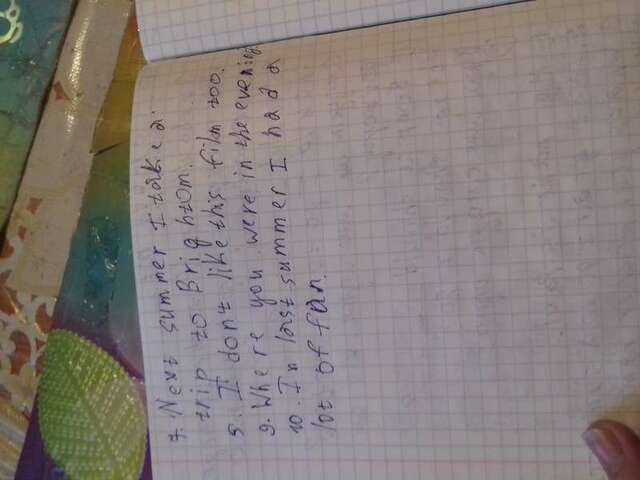 7. Next summer I take a
trip to Brightom.
8. I don't like this film too.
9. Where you were in the evening.
10. In last summer I had a
lot of fun.